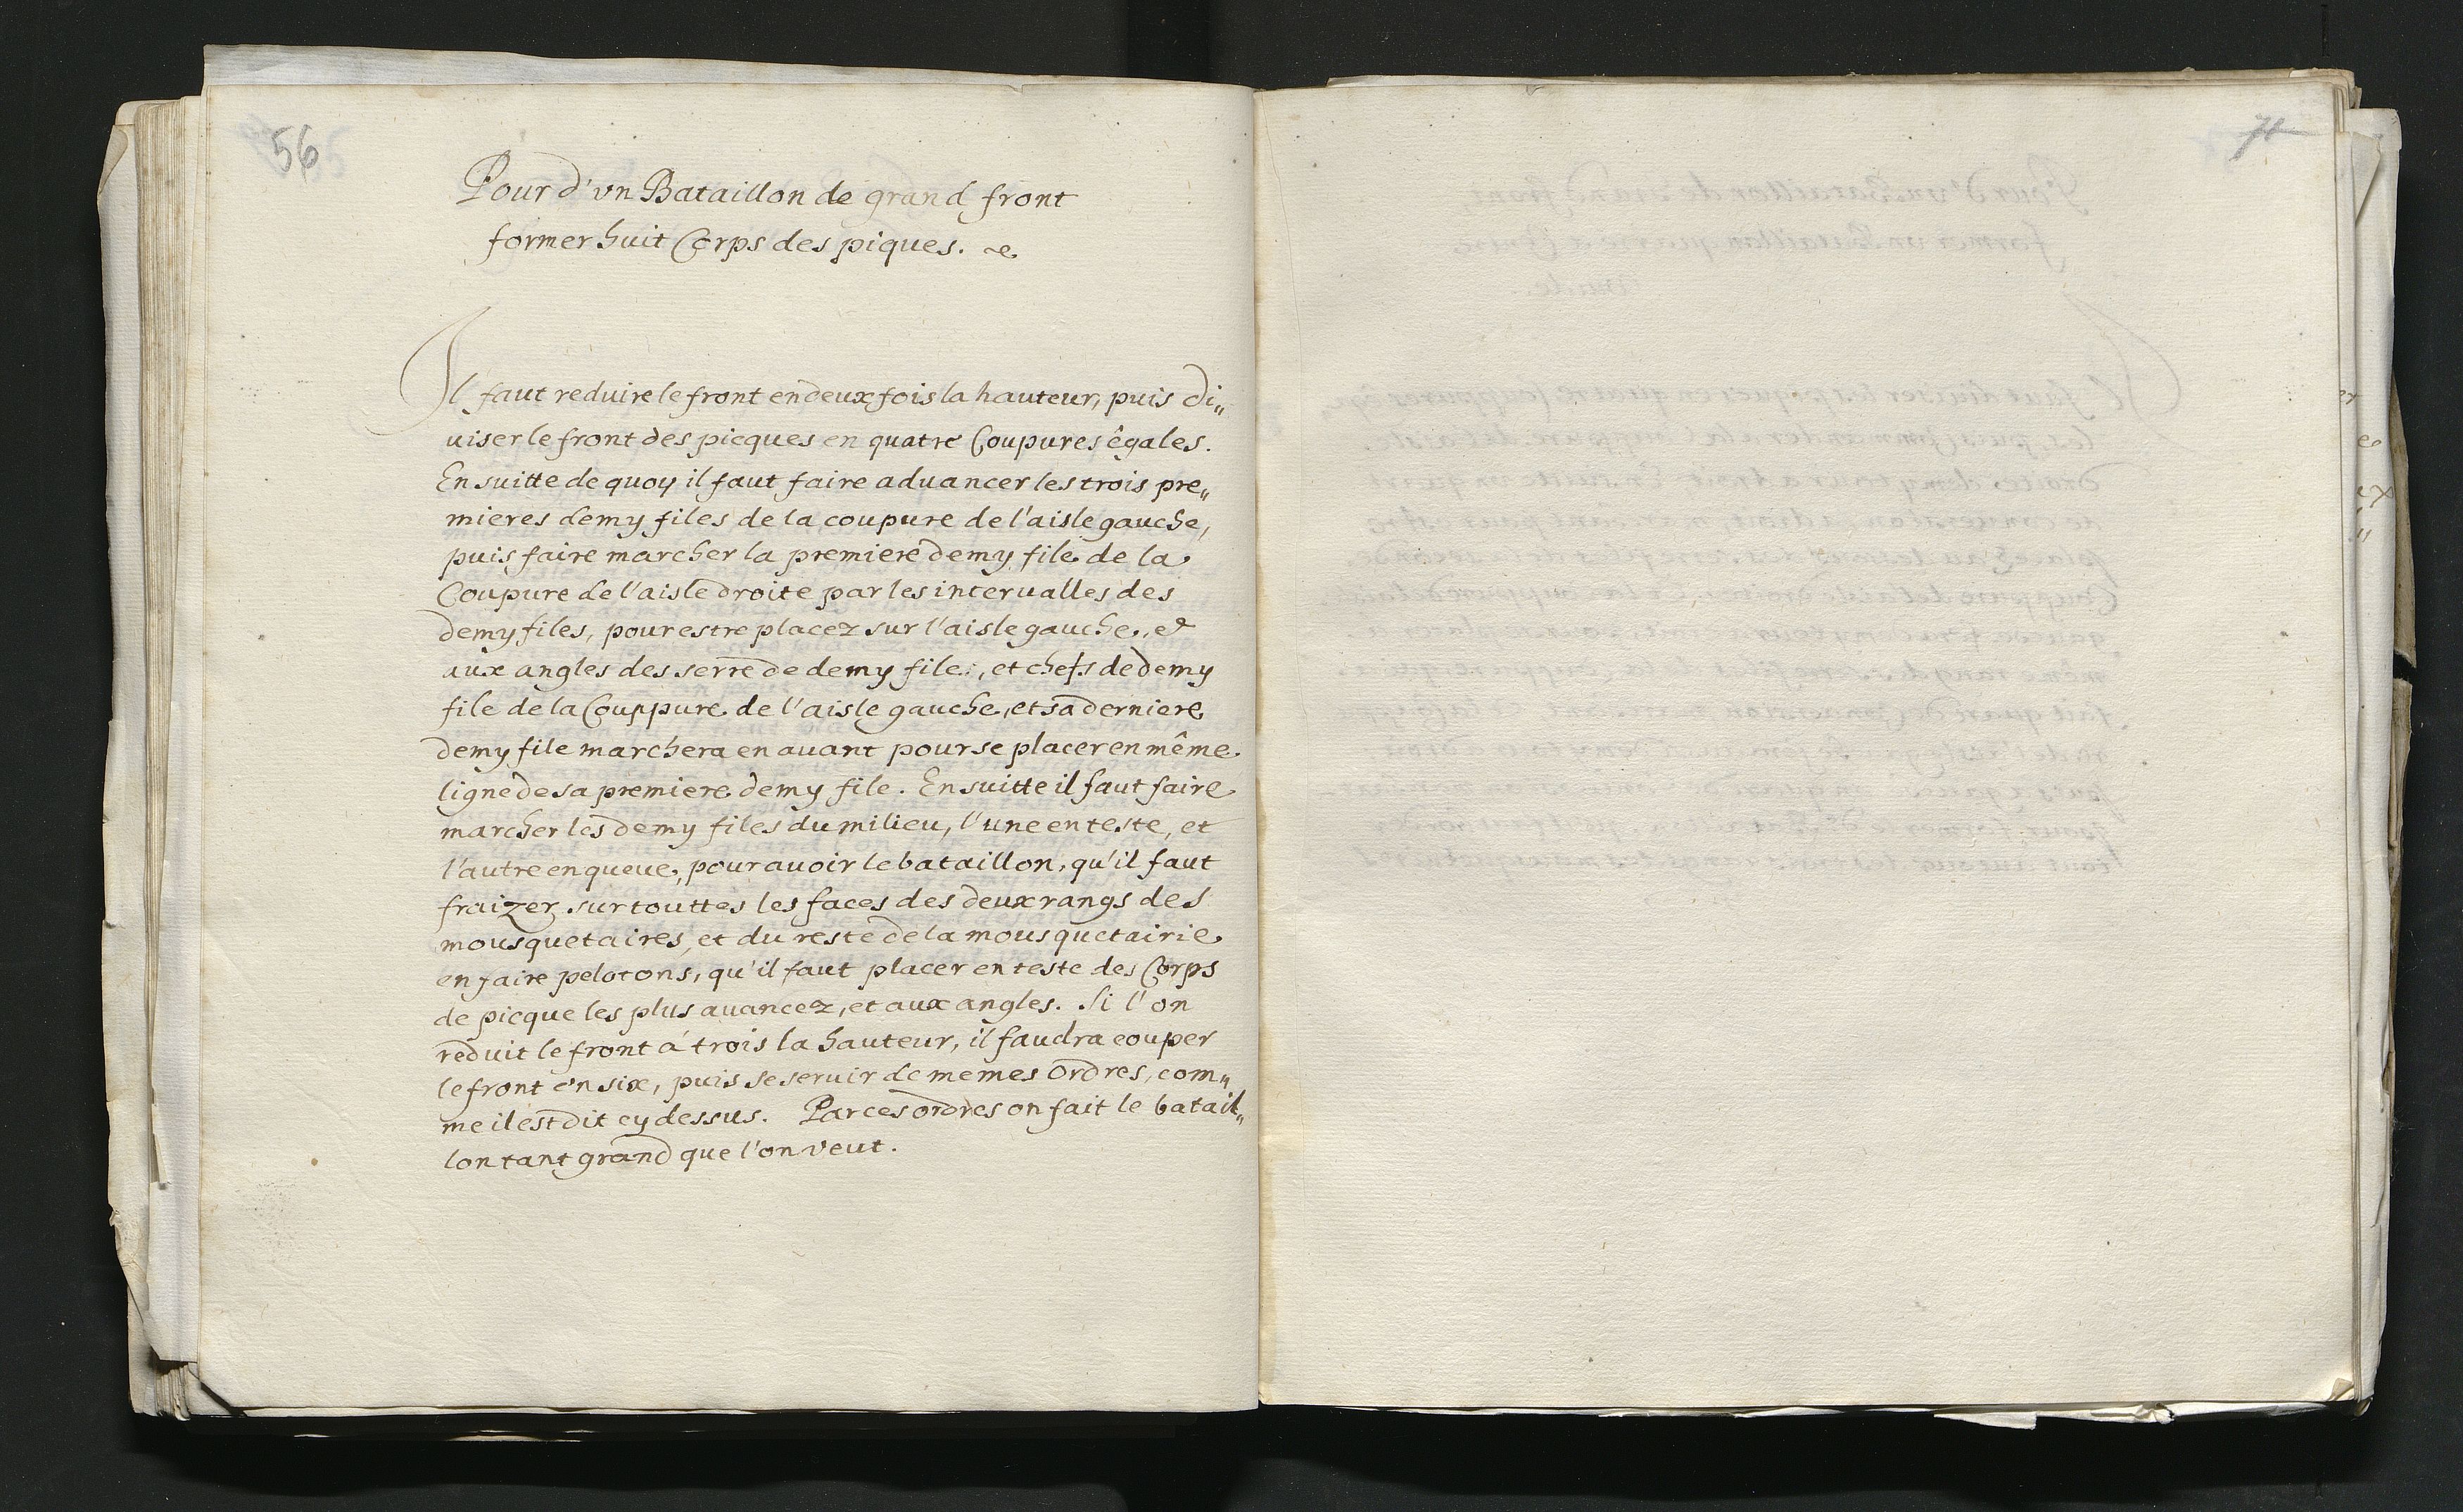 56
Pour d'vn Bataillon de grand front
former huit Corps des piques.
Il faut reduire le front en deux fois la hauteur, puis di„
uiser le front des picques en quatre Coupures êgales.
En suitte de quoy il faut faire aduancer les trois pre„
mieres demy files de la coupure de l'aisle gauche,
puis faire marcher la premiere demy file de la
Coupure de l'aisle droite par les interualles des
demy files, pour estre placez sur l'aisle gauche, et
aux angles des serre de demy file, et chefs de demy
file de la Couppure de l'aisle gauche, et sa derniere
demy file marchera en auant pour se placer en même
ligne de sa premiere demy file. En suitte il faut faire
marcher les demy files du milieu, l'une en teste, et
l'autre en queue, pour auoir le bataillon, qu'il faut
fraizer sur touttes les faces des deux rangs des
mousquetaires, et du reste de la mousquetairie
en faire pelotons, qu'il faut placer en teste des Corps
de picque les plus auancez, et aux angles. Si l'on
reduit le front á trois la hauteur, il faudra couper
le front en six, puis se seruir de memes ordres, com„
me il est dit cy dessus. Par ces ordres on fait le batail„
lon tant grand que l'on veut.